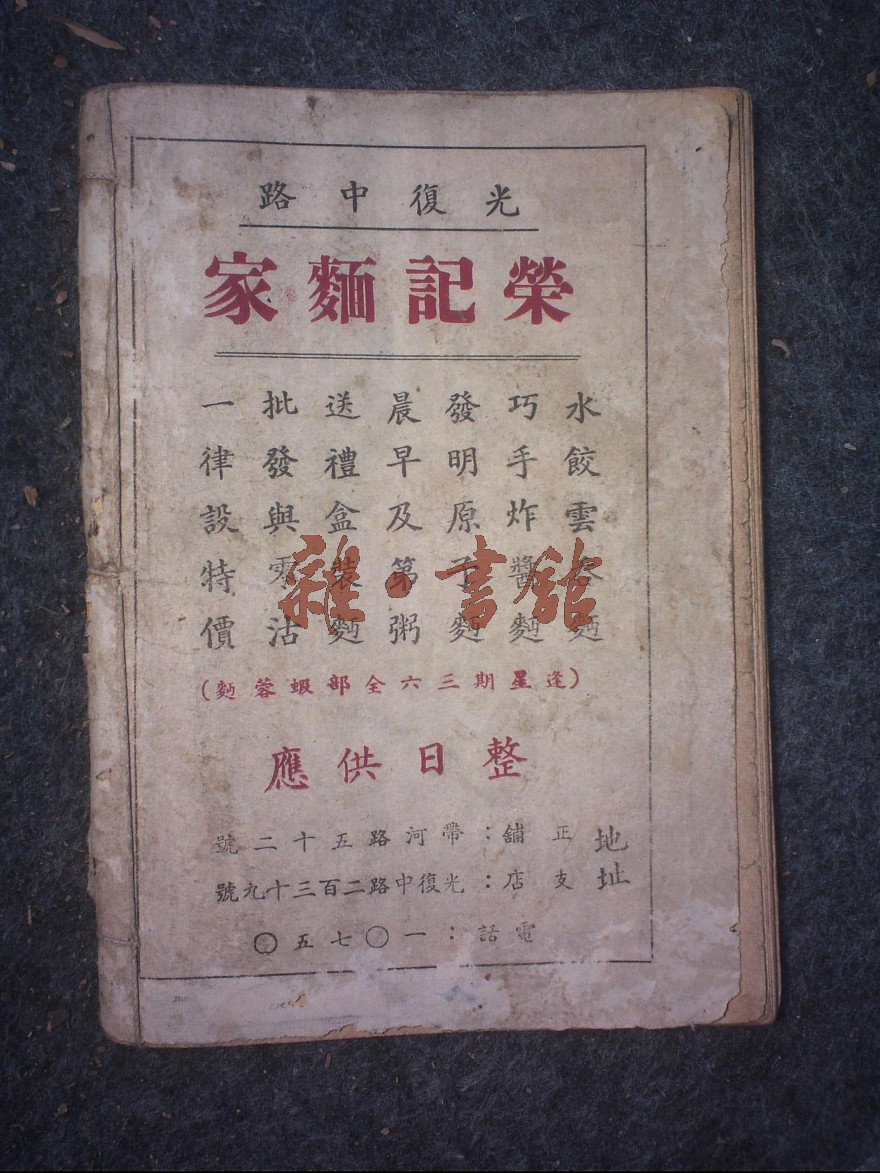 光復中路
榮記麵家
水餃雲吞麵
巧手炸醬麵
發明原子麵
晨早及第粥
送禮盒裝麵
批發與零沽
一律設特價
(逢星期三六全部蝦蓉麵)
整日供應
地址
正舖:帶河路五十二號
支店:光復中路二百三十九號
電話:一〇七五〇
雜·書館